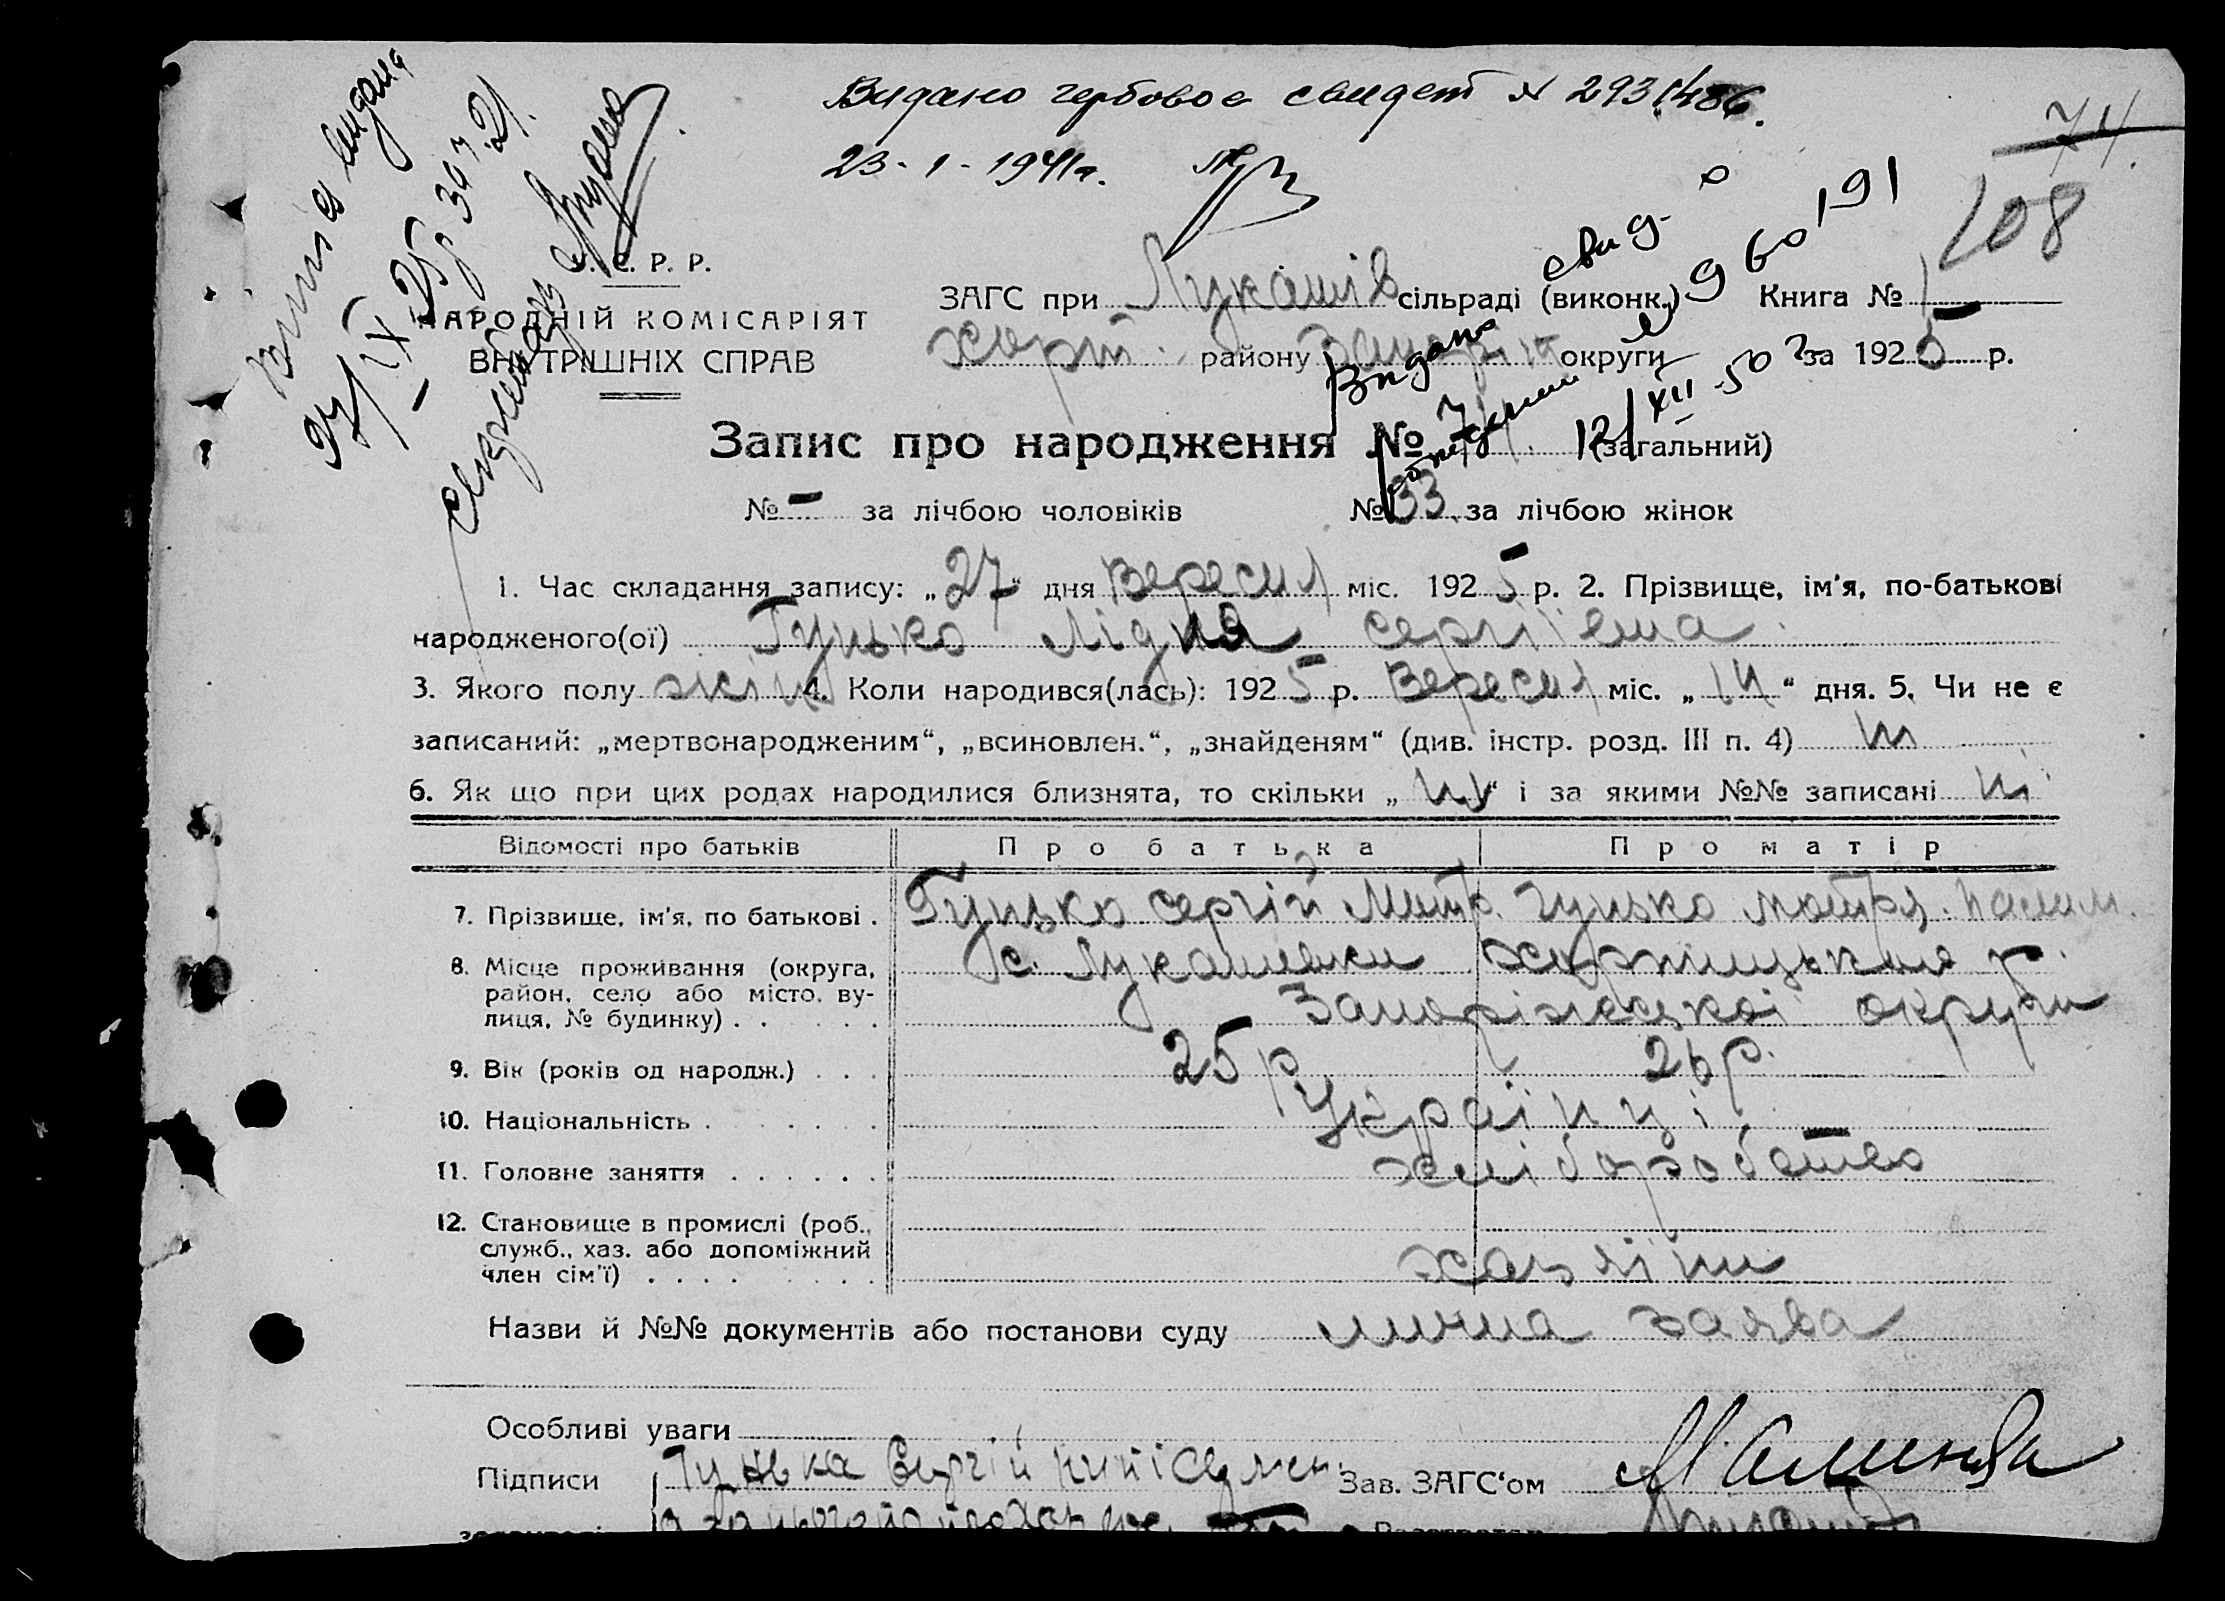 Видано гербовое свидет № 2931486.
23-1-1941г.
74.
108
Витяг видана
С. Р. Р.
НАРОДНІЙ КОМІСАРІЯТ
ВНУТРІШНІХ СПРАВ
ЗАГС при Лукашів сільраді (виконк.) Книга № 1
Хорт. району Запоріж округи за 1925 р.
Видано свид.
12/XII-50
Запис про народження № 74. (загальний)
№ - за лічбою чоловіків № 33 за лічбою жінок
1. Час складання запису: „27“ дня Вересня міс. 1925 р. 2. Прізвище, ім'я, по-батькові
народженого(ої) Гунько Лідия Сергіївна
3. Якого полу жін 4. Коли народився(лась): 1925 р. Вересня міс. „14“ дня. 5. Чи не є
записаний: „мертвонародженим“, „всиновлен.“, „знайденям“ (див. інстр. розд. III п. 4) ні
6. Як що при цих родах народилися близнята, то скільки „ні“ і за якими №№ записані ні
Відомості про батьків Про батька Про матір
7. Прізвище, ім'я, по батькові . Гунько Сергій Митр. Гунько Мотря
8. Місце проживання (округа, с. Лукашевки Хортицького р.
район, село або місто, ву-
лиця, № будинку) . . . . . . Запоріжської округи
9. Вік (років од народж.) . . . 25 р. 26 р.
10. Національність . . . . . . . Українці
11. Головне заняття . . . . . . хліборобство
12. Становище в промислі (роб.,
служб., хаз. або допоміжний
член сім'ї) . . . . . . . . хазяїни
Назви й №№ документів або постанови суду лична заява
Особливі уваги
Підписи Гунька Сергій Зав. ЗАГС'ом